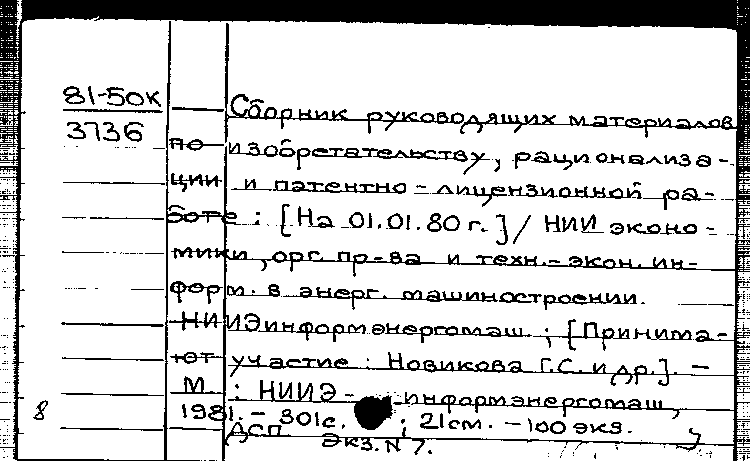 81-50к
3736
Сборник руководящих материалов
по изобретательству, рационализа-
ции и патентно-лицензионной ра-
боте : [На 01.01.80 г.] / НИИ эконо-
мики, орг. пр-ва и техн.-экон. ин-
форм. в энерг. машиностроении.
НИИЭинформэнергомаш ; [Принима-
ют участие : Новикова Г.С. и др.]. -
М. : НИИЭ- информэнергомаш,
8 1981. - 301с. ; 21см. - 100 экз.
ДСП Экз. N 7.